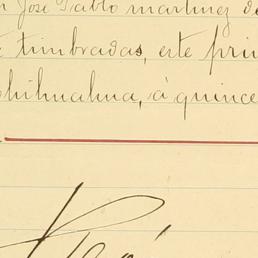 José Pablo martinez d
timbradas, este pri
hihuahua, á quince